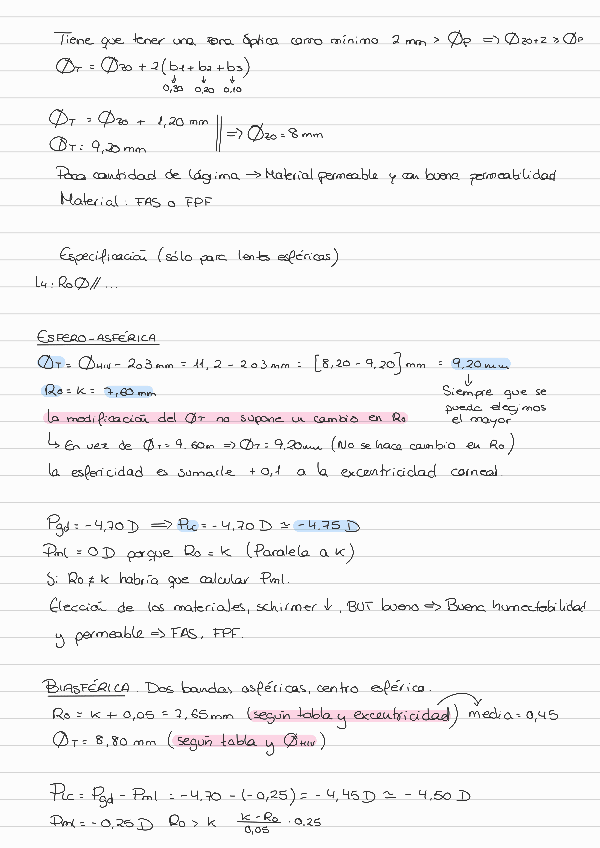 Tiene que tener una zona óptica como mínimo 2 mm > ØP => Øzo+2 ≥ ØP
ØT = Øzo + 2(b1+b2+b3)
0,30 0,20 0,10
ØT = Øzo + 1,20 mm
ØT = 9,20 mm => Øzo = 8 mm
Poca cantidad de lágima → Material permeable y con buena permeabilidad
Material: FAS o FPF
Especificación (sólo para lentes esféricas)
L4: Ro Ø // ...
ESFERO-ASFÉRICA
ØT = ØHIV - 2o3 mm = 11,2 - 2o3 mm = [8,20 - 9,20] mm = 9,20 mm
Ro = K = 7,60 mm
Siempre que se
pueda elegimos
el mayor
la modificación del ØT no supone un cambio en Ro
↳ En vez de ØT = 9.60m => ØT = 9,20mm (No se hace cambio en Ro)
la esfericidad es sumarle +0,1 a la excentricidad corneal
Pgd = -4,70 D => Plc = -4,70 D ≃ -4,75 D
Pml = 0 D porque Ro = K (Paralela a K)
Si Ro ≠ K habría que calcular Pml.
Elección de los materiales, schirmer ↓, BUT bueno => Buena humectabilidad
y permeable => FAS, FPF.
BIASFÉRICA. Dos bandas asféricas, centro esférico.
Ro = K + 0,05 = 7,65 mm (según tabla y excentricidad) media = 0,45
ØT = 8,80 mm (según tabla y ØHIV)
Plc = Pgd - Pml = -4,70 - (-0,25) = -4,45 D ≃ -4,50 D
Pml = -0,25 D Ro > K K-Ro/0,05 · 0,25